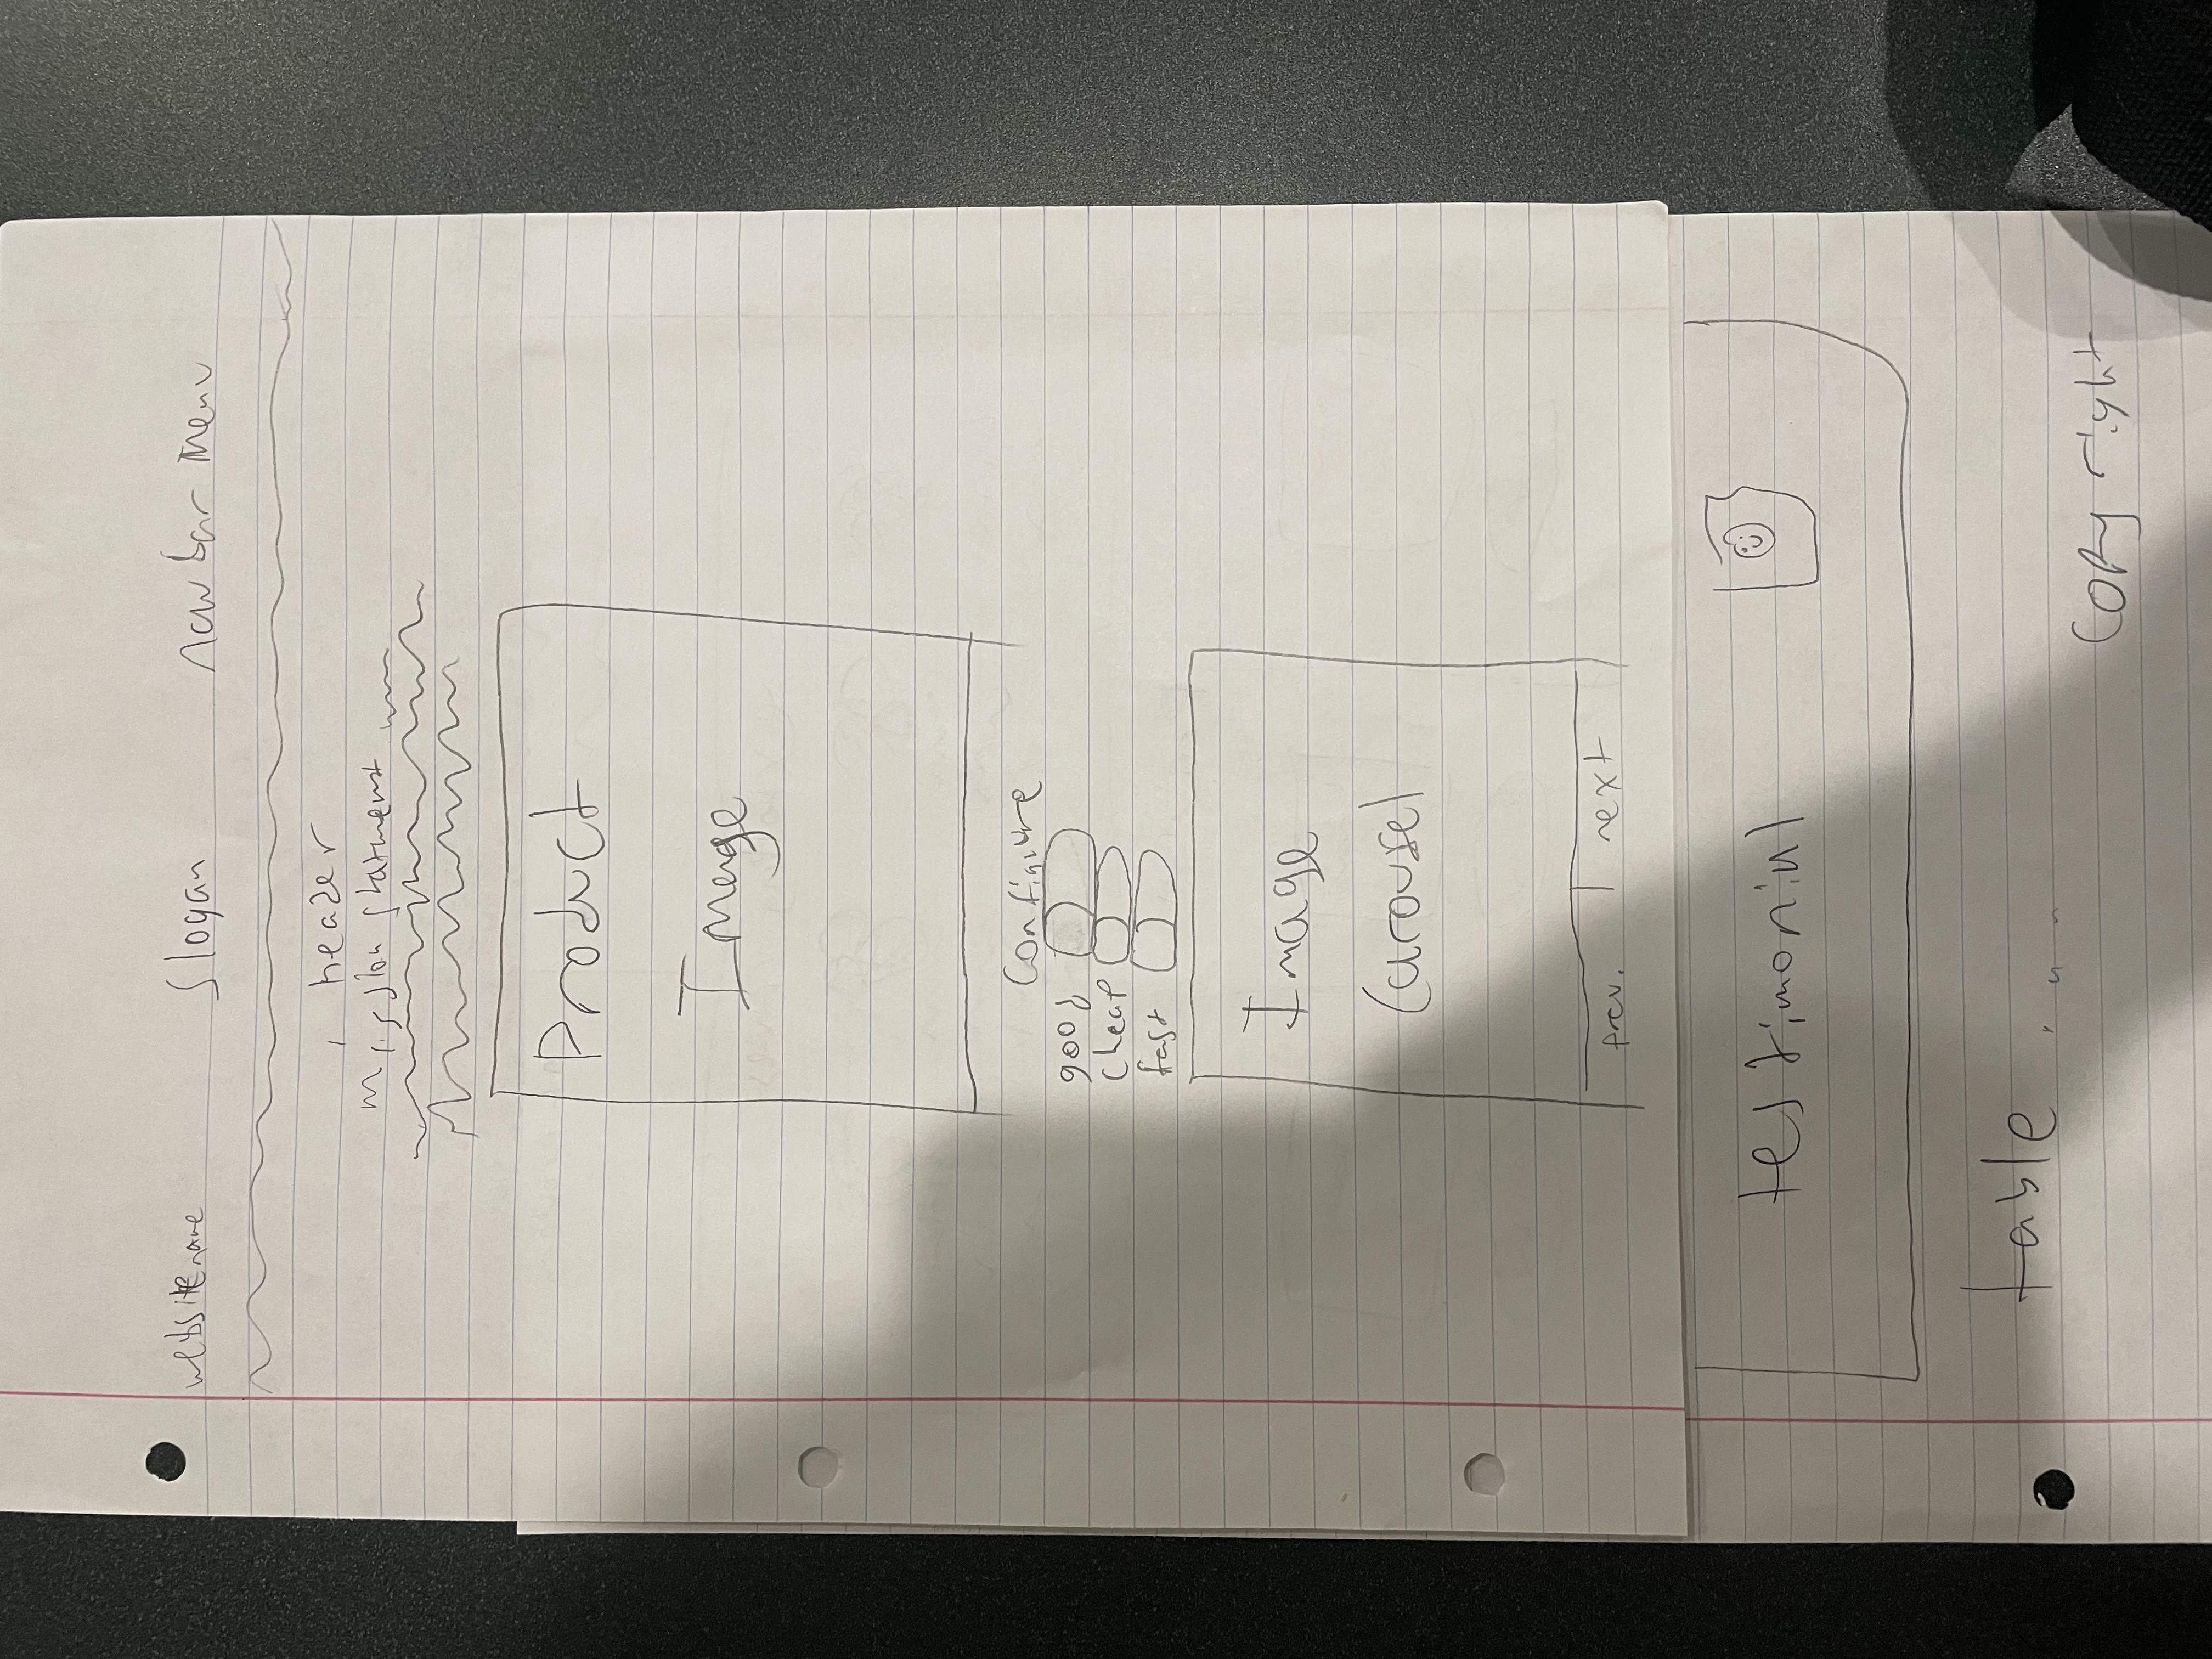 website name slogan nav bar menu
header
mission statment
Product
Image
Configure
good
cheap
fast
Image
Carousel
prev. next
testimonial
table ...
Copy right